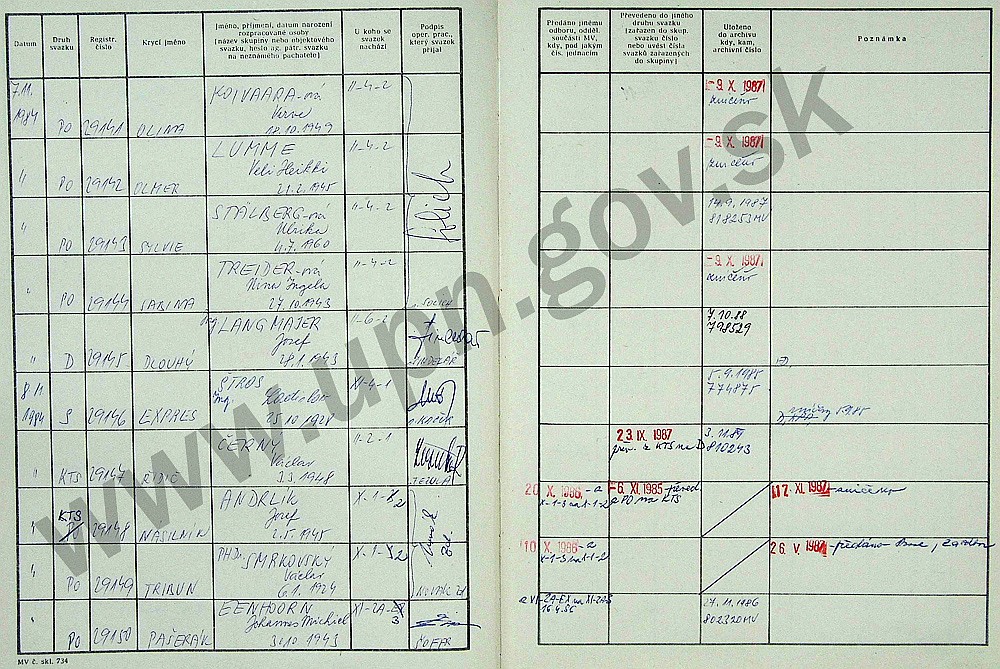 Datum
Druh svazku
Registr. číslo
Krycí jméno
Jméno, příjmení, datum narození
rozpracované osoby
(název skupiny nebo objektového
svazku, heslo ag. pátr. svazku
na neznámého pachatele)
U koho se
svazek
nachází
Podpis
oper. prac.,
který svazek
přijal
Předáno jinému
odboru, odděl.
součásti MV,
kdy, pod jakým
čís. jednacím
Převedeno do jiného
druhu svazku
(zařazen do skup.
svazku číslo
nebo uvést čísla
svazků zařazených
do skupiny)
Uloženo
do archivu
kdy, kam,
archivní číslo
Poznámka
7.11. 1984 PO 29141 OLINA
KOIVAARA-ná
Virve
18.10.1949
II-4-2
-9. X. 1987
zničeno
" PO 29142 OLMER
LUMME
Veli Heikki
21.2.1945
II-4-2
-9. X. 1987
zničeno
" PO 29143 SYLVIE
STÅLBERG-ná
Ulrika
4.7.1960
II-4-2
14.9.1987
818253 MV
" PO 29144 SABINA
TREIDER-ná
Nina Ingela
27.10.1943
II-4-2
-9. X. 1987
zničeno
" D 29145 DLOUHÝ
Ing LANGMAJER
Josef
28.1.1943
II-6-2
7.10.88
798529
8/11 1984 S 29146 EXPRES
ŠTROS
Ing. Ladislav
25.10.1928
XI-4-1
5.9.1985
774875
1985
" KTS 29147 ŘIDIČ
ČERNÝ
Václav
3.3.1948
II-2-1
23. IX. 1987
přev. z KTS na D
3.11.89
810243
" KTS PO 29148 NASILNIK
ANDRLÍK
Josef
2.5.1945
X-1-2
20. X. 1986 - a
X-1-3 na X-1-2
-6. XI. 1985
z PO na KTS
17. XI. 1987
" PO 29149 TRIBUN
PHDr. SMRKOVSKÝ
Václav
6.1.1924
X-1-2
10. X. 1986 - a
X-1-3 na X-1-2
26. V. 1987 - předáno
PO 29150 PAŠERÁK
EENHOORN
Johannes Michiel
30.10.1943
XI-2A-3
ŠOFFR
27.11.1986
802320 MV
MV č. skl. 734
www.upn.gov.sk